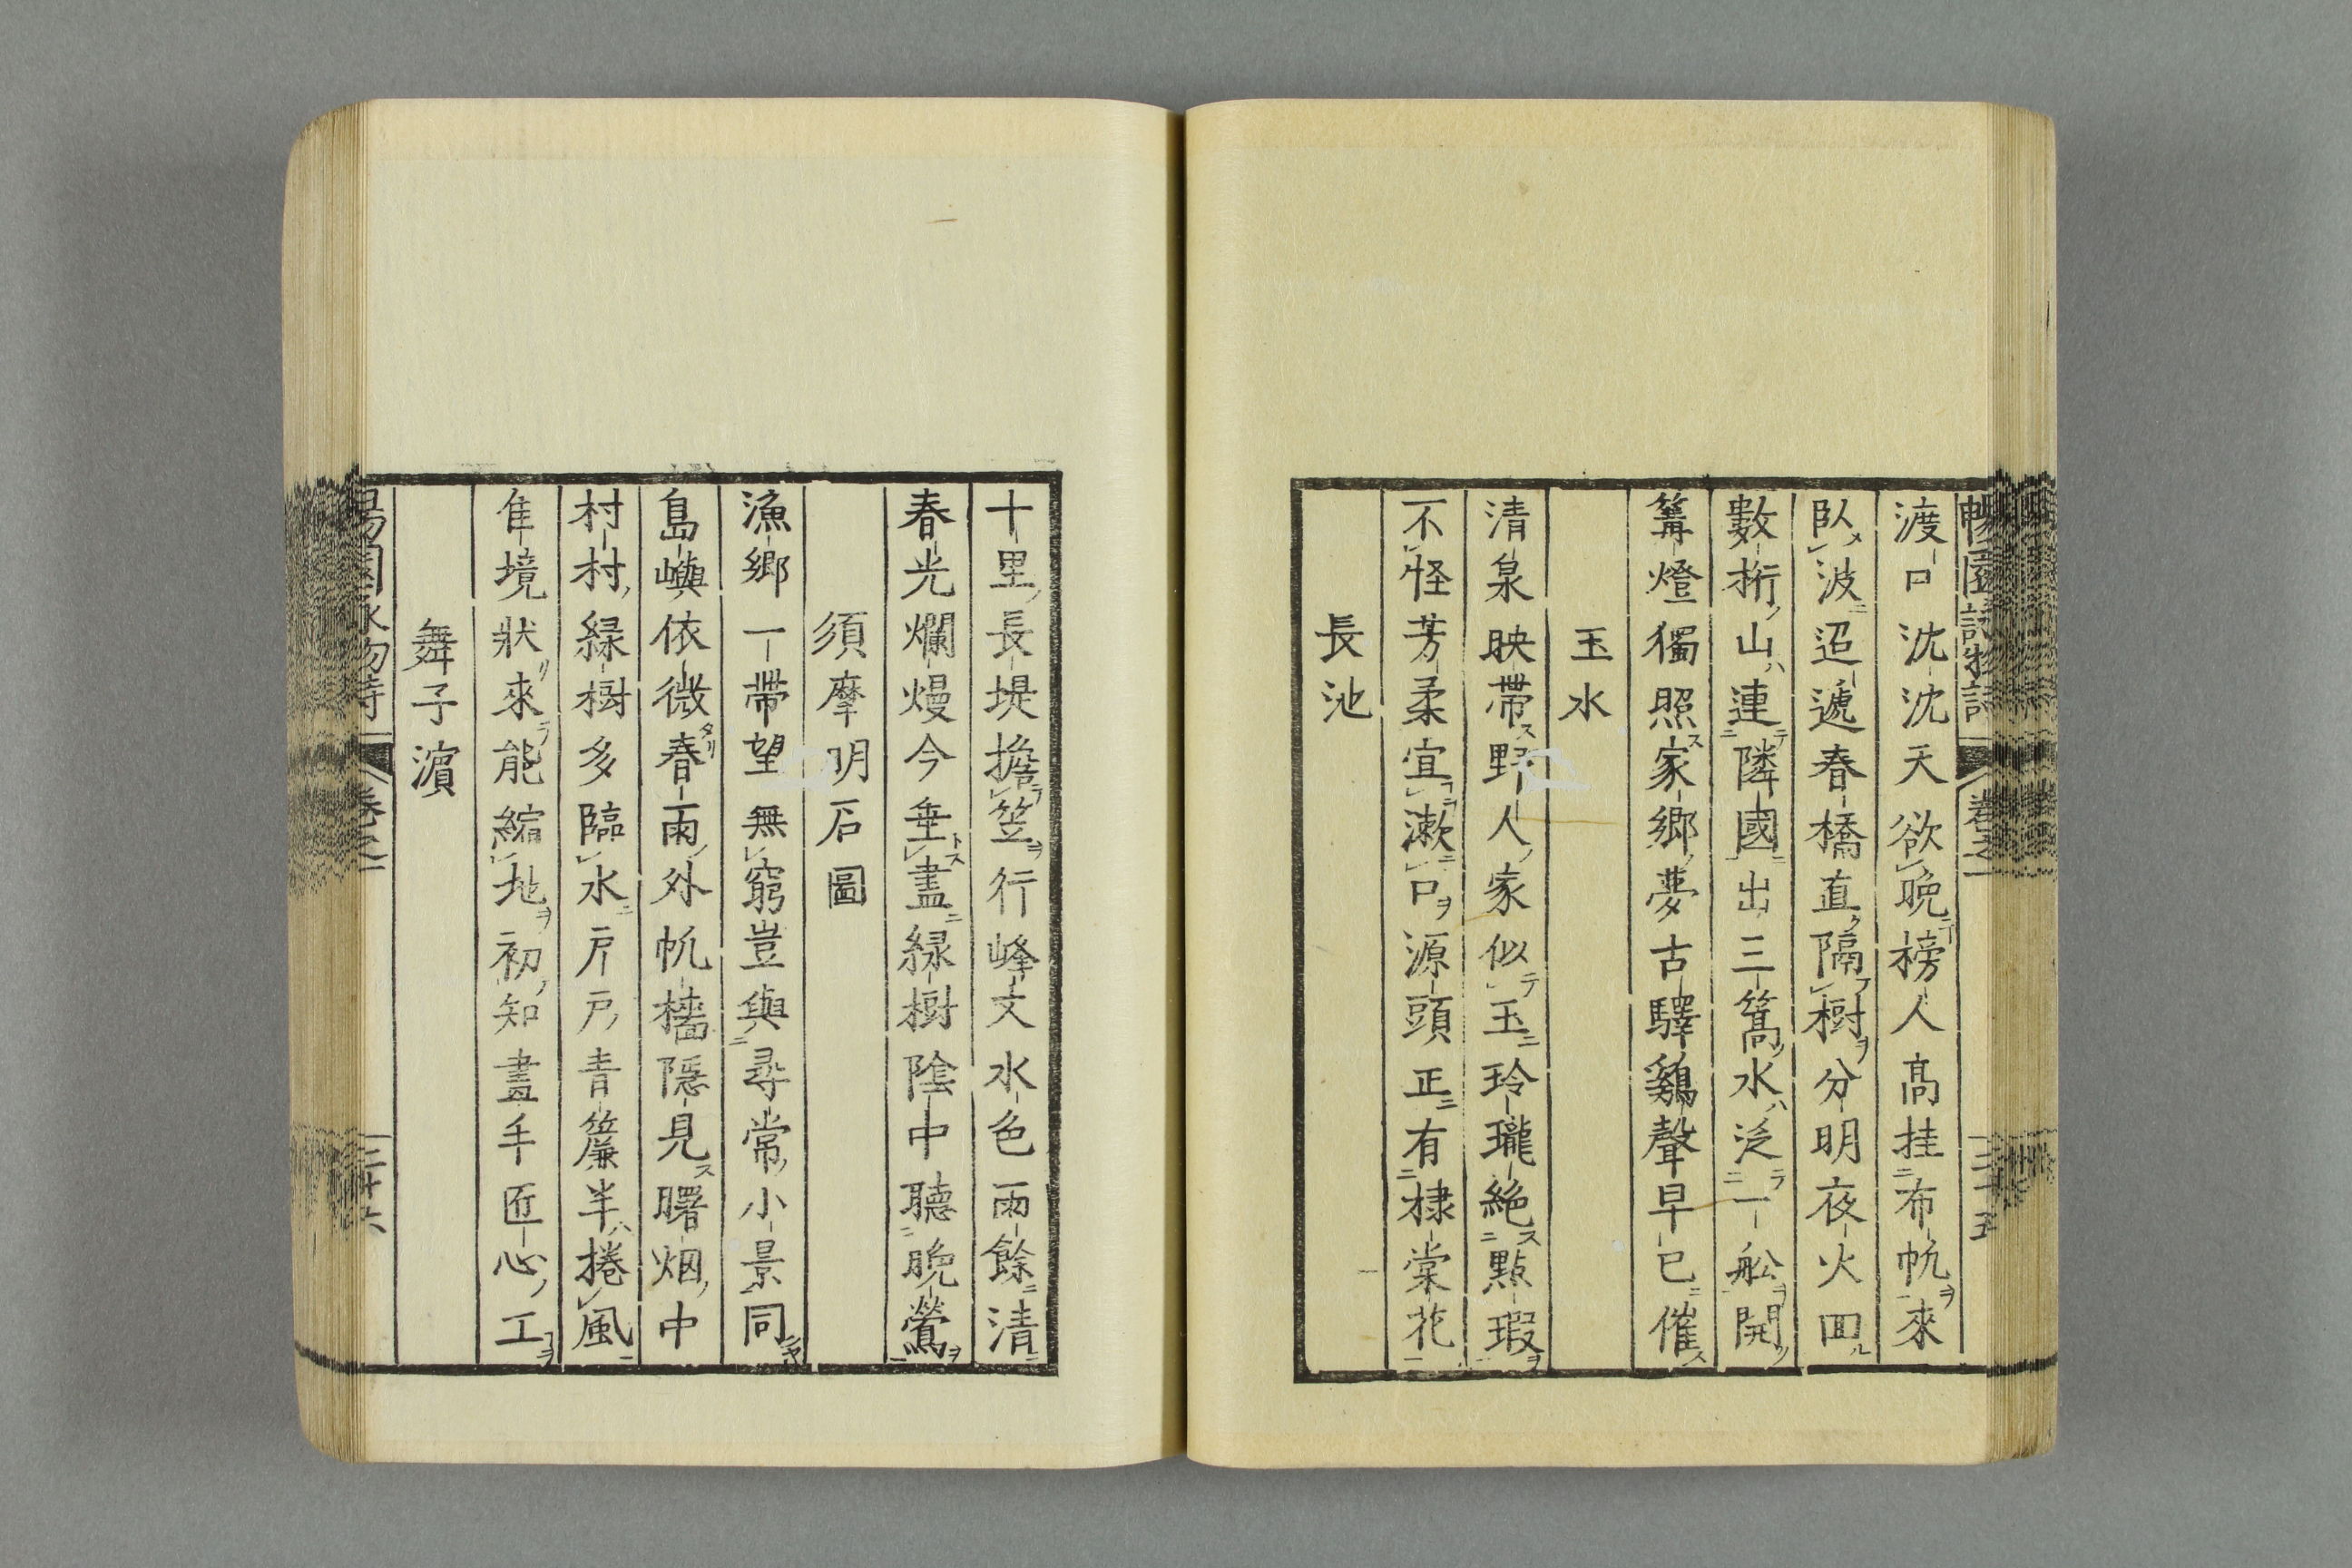 渡口沈沈天欲晩榜人高挂布帆來
臥波迢遞春橋直隔樹分明夜火囬
數桁山連隣國出三篙水泛一舩開
篝燈獨照家鄉夢古驛鷄聲早已催
玉水
清泉映帶野人家似玉玲瓏絶點瑕
不怪芳柔宜漱口源頭正有棣棠花
長池
十里長堤擔笠行峰文水色雨餘清
春光爛熳今垂盡綠樹陰中聽晩鶯
須摩明石圖
漁鄉一帶望無窮豈與尋常小景同
島嶼依微春雨外帆檣隱見曙烟中
村村綠樹多臨水戸戸青簾半捲風
隹境狀來能縮地初知畫手匠心工
舞子濵